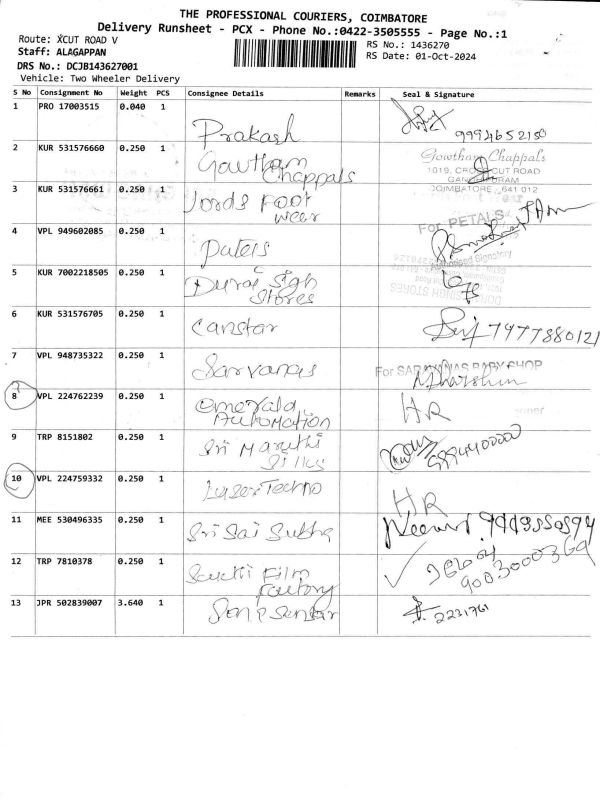 THE PROFESSIONAL COURIERS, COIMBATORE
Delivery Runsheet - PCX - Phone No.:0422-3505555 - Page No.:1
Route: XCUT ROAD V
RS No.: 1436270
Staff: ALAGAPPAN
RS Date: 01-Oct-2024
DRS No.: DCJB143627001
Vehicle: Two Wheeler Delivery
S No Consignment No Weight PCS Consignee Details Remarks Seal & Signature
1 PRO 17003515 0.040 1 Prakash 9994652150
2 KUR 531576660 0.250 1 Gowtham Chappals Gowtham Chappals
1019, CROSSCUT ROAD
GANDHIPURAM
COIMBATORE - 641 012
3 KUR 531576661 0.250 1 Lords Foot wear
For PETALS
4 VPL 949602085 0.250 1
Authorised Signatory
5 KUR 7002218505 0.250 1 Durai Sigh Stores
6 KUR 531576705 0.250 1 Canstar 7477880121
7 VPL 948735322 0.250 1 Sarvanas For SARAVANAS BABY SHOP
8 VPL 224762239 0.250 1 Emerald Automation HR
9 TRP 8151802 0.250 1 Sri Maruthi Silks
10 VPL 224759332 0.250 1 Lazer Techno HR
11 MEE 530496335 0.250 1 Sri Sai Subha
12 TRP 7810378 0.250 1 Film Factory 9003000369
13 JPR 502839007 3.640 1 2231761